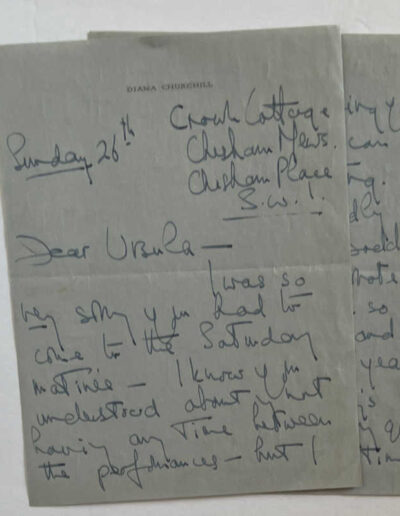 DIANA CHURCHILL
Crown Cottage
Sunday 26th
Chesham Mews.
Chesham Place
S.W.1.
Dear Ursula —
I was so
very sorry you had to
come to the Saturday
matinée — I know you
understood about my not
having any time between
the performances — but I
ing y
can
ng.
dly
so
and
yea
is
y
tim